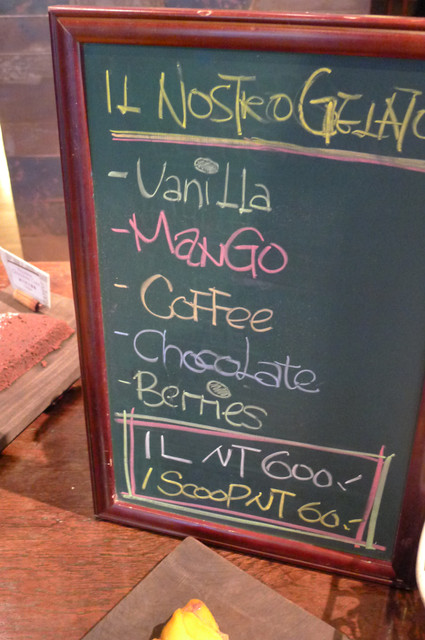 IL NOSTRO GELATO
- Vanilla
- MANGO
- Coffee
- Chocolate
- Berries
1L NT 600.-
1 SCOOP NT 60.-